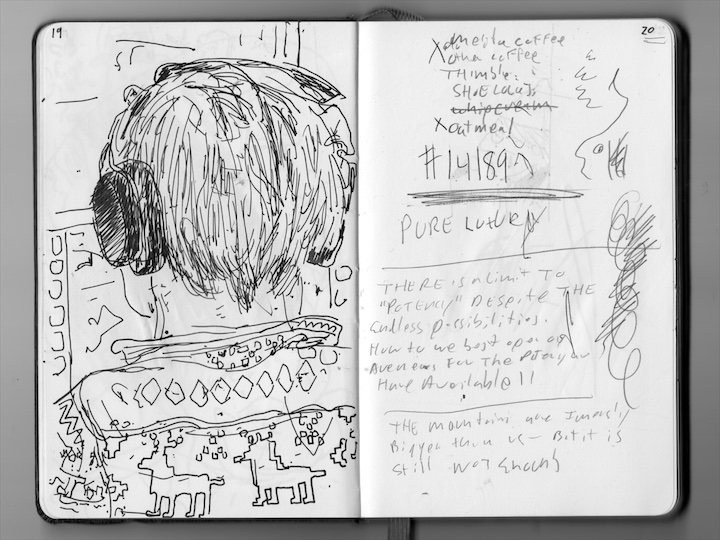 19
20
media coffee
X other coffee
THimble
SHOELaces
whipcream
X oatmeal
#141897
PURE LUXURY
THERE is a Limit To
"POTENCY" DESpite THE
Endless Possibilities.
How to we best open up
Avenues For The
Have Available!!
THE mountains are Immensly
Bigger than us — But it is
Still NOT